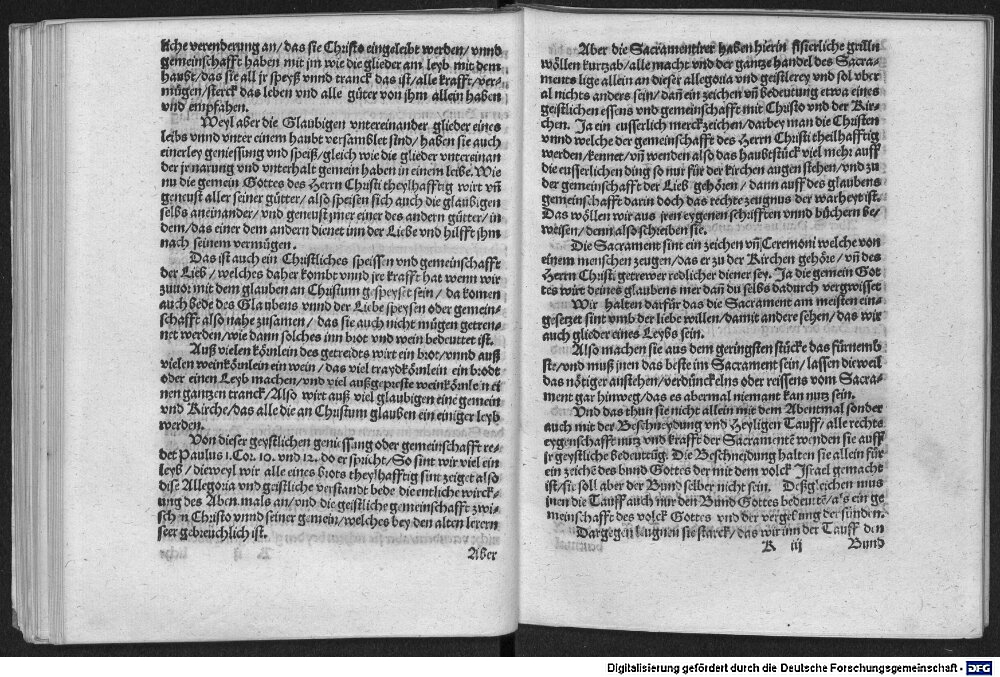 liche verenderung an/das sie Christo eingeleibt werden/vnnd
gemeinschafft haben mit jm wie die glieder am leyb mit dem
haubt/das sie all jr speyß vnnd tranck das ist/alle krafft/ver-
mügen/sterck das leben vnd alle güter von jhm allein haben
vnd empfahen.
Weyl aber die Glaubigen vntereinander glieder eines
leibs vnnd vnter einem haubt versamblet sind/haben sie auch
einerley geniessung vnd speiß/gleich wie die glieder vntereinan
der jr narung vnd vnterhalt gemein haben in einem leibe. Wie
nu die gemein Gottes des Herrn Christi theylhafftig wirt vñ
geneust aller seiner gütter/also speisen sich auch die glaubigen
selbs aneinander/vnd geneust jmer einer des andern gütter/in
dem/das einer dem andern dienet inn der Liebe vnd hilfft jhm
nach seinem vermügen.
Das ist auch ein Christliches speissen vnd gemeinschafft
der Lieb/welches daher kombt vnnd jre krafft hat wenn wir
zuuor mit dem glauben an Christum gespeyset sein/da komen
auch bede des Glaubens vnnd der Liebe speysen oder gemein-
schafft also nahe zusamen/das sie auch nicht mügen getren-
net werden/wie dann solches inn brot vnd wein bedeuttet ist.
Auß vielen körnlein des getreidts wirt ein brot/vnnd auß
vielen weinkörnlein ein wein/das viel traydkörnlein ein brodt
oder einen Leyb machen/vnd viel außgepreste weinkörnlein ei
nen gantzen tranck/Also wirt auß viel glaubigen eine gemein
vnd Kirche/das alle die an Christum glauben ein einiger leyb
werden.
Von dieser geystlichen geniessung oder gemeinschafft re-
det Paulus 1. Cor. 10. vnd 12. do er spricht/So sint wir viel ein
leyb/dieweyl wir alle eines brots theylhafftig sint zeiget also
dise Allegoria vnd geistliche verstandt bede die entliche wirck-
ung des Abentmals an/vnd die geistliche gemeinschafft zwi-
schen Christo vnnd seiner gemein/welches bey den alten lerern
seer gebreuchlich ist.
Aber
Aber die Sacramentirer haben hierin fisierliche grilln
wöllen kurtzab/alle macht vnd der gantze handel des Sacra-
ments lige allein an dieser allegoria vnd geistlerey vnd sol vber
al nichts anders sein/dañ ein zeichen vñ bedeutung etwa eines
geistlichen essens vnd gemeinschafft mit Christo vnd der Kir-
chen. Ja ein eusserlich merckzeichen/darbey man die Christen
vnnd welche der gemeinschafft des Herrn Christi theilhafftig
werden/kennet/vñ wenden also das haubtstück viel mehr auff
die eusserlichen ding so nur für der kirchen augen stehen/vnd zu
der gemeinschafft der Lieb gehören/dann auff des glaubens
gemeinschafft darin doch das rechte zeugnus der warheyt ist.
Das wöllen wir aus jren eygenen schrifften vnnd büchern be-
weisen/denn also schreiben sie.
Die Sacrament sint ein zeichen vñ Ceremoni welche von
einem menschen zeugen/das er zu der Kirchen gehöre/vñ des
Herrn Christi getrewer redlicher diener sey. Ja die gemein Got
tes wirt deines glaubens mer dañ du selbs dadurch vergwisset
Wir halten darfür das die Sacrament am meisten ein-
gesetzet sint vmb der liebe willen/damit andere sehen/das wir
auch glieder eines Leybs sein.
Also machen sie aus dem geringsten stücke das fürnemb
ste/vnd muß jnen das beste im Sacrament sein/lassen dieweil
das nötiger anstehen/verdünckelns oder reissens vom Sacra-
ment gar hinweg/das es abermal niemant kan nutz sein.
Vnd das thun sie nicht allein mit dem Abentmal sonder
auch mit der Beschneydung vnd Heyligen Tauff/alle rechts
eygenschafft nutz vnd krafft der Sacramentē wenden sie auff
jr geystliche bedeuttūg. Die Beschneidung halten sie allein für
ein zeichē des bund Gottes der mit dem volck Israel gemacht
ist/sie soll aber der Bund selber nicht sein. Deßgleichen mus
jnen die Tauff auch nur den Bund Gottes bedeutē/als ein ge
meinschafft des volck Gottes vnd der vergebung der sünden.
Dargegen leugnen sie starck/das wir inn der Tauff den
K iij Bund
Digitalisierung gefördert durch die Deutsche Forschungsgemeinschaft - DFG